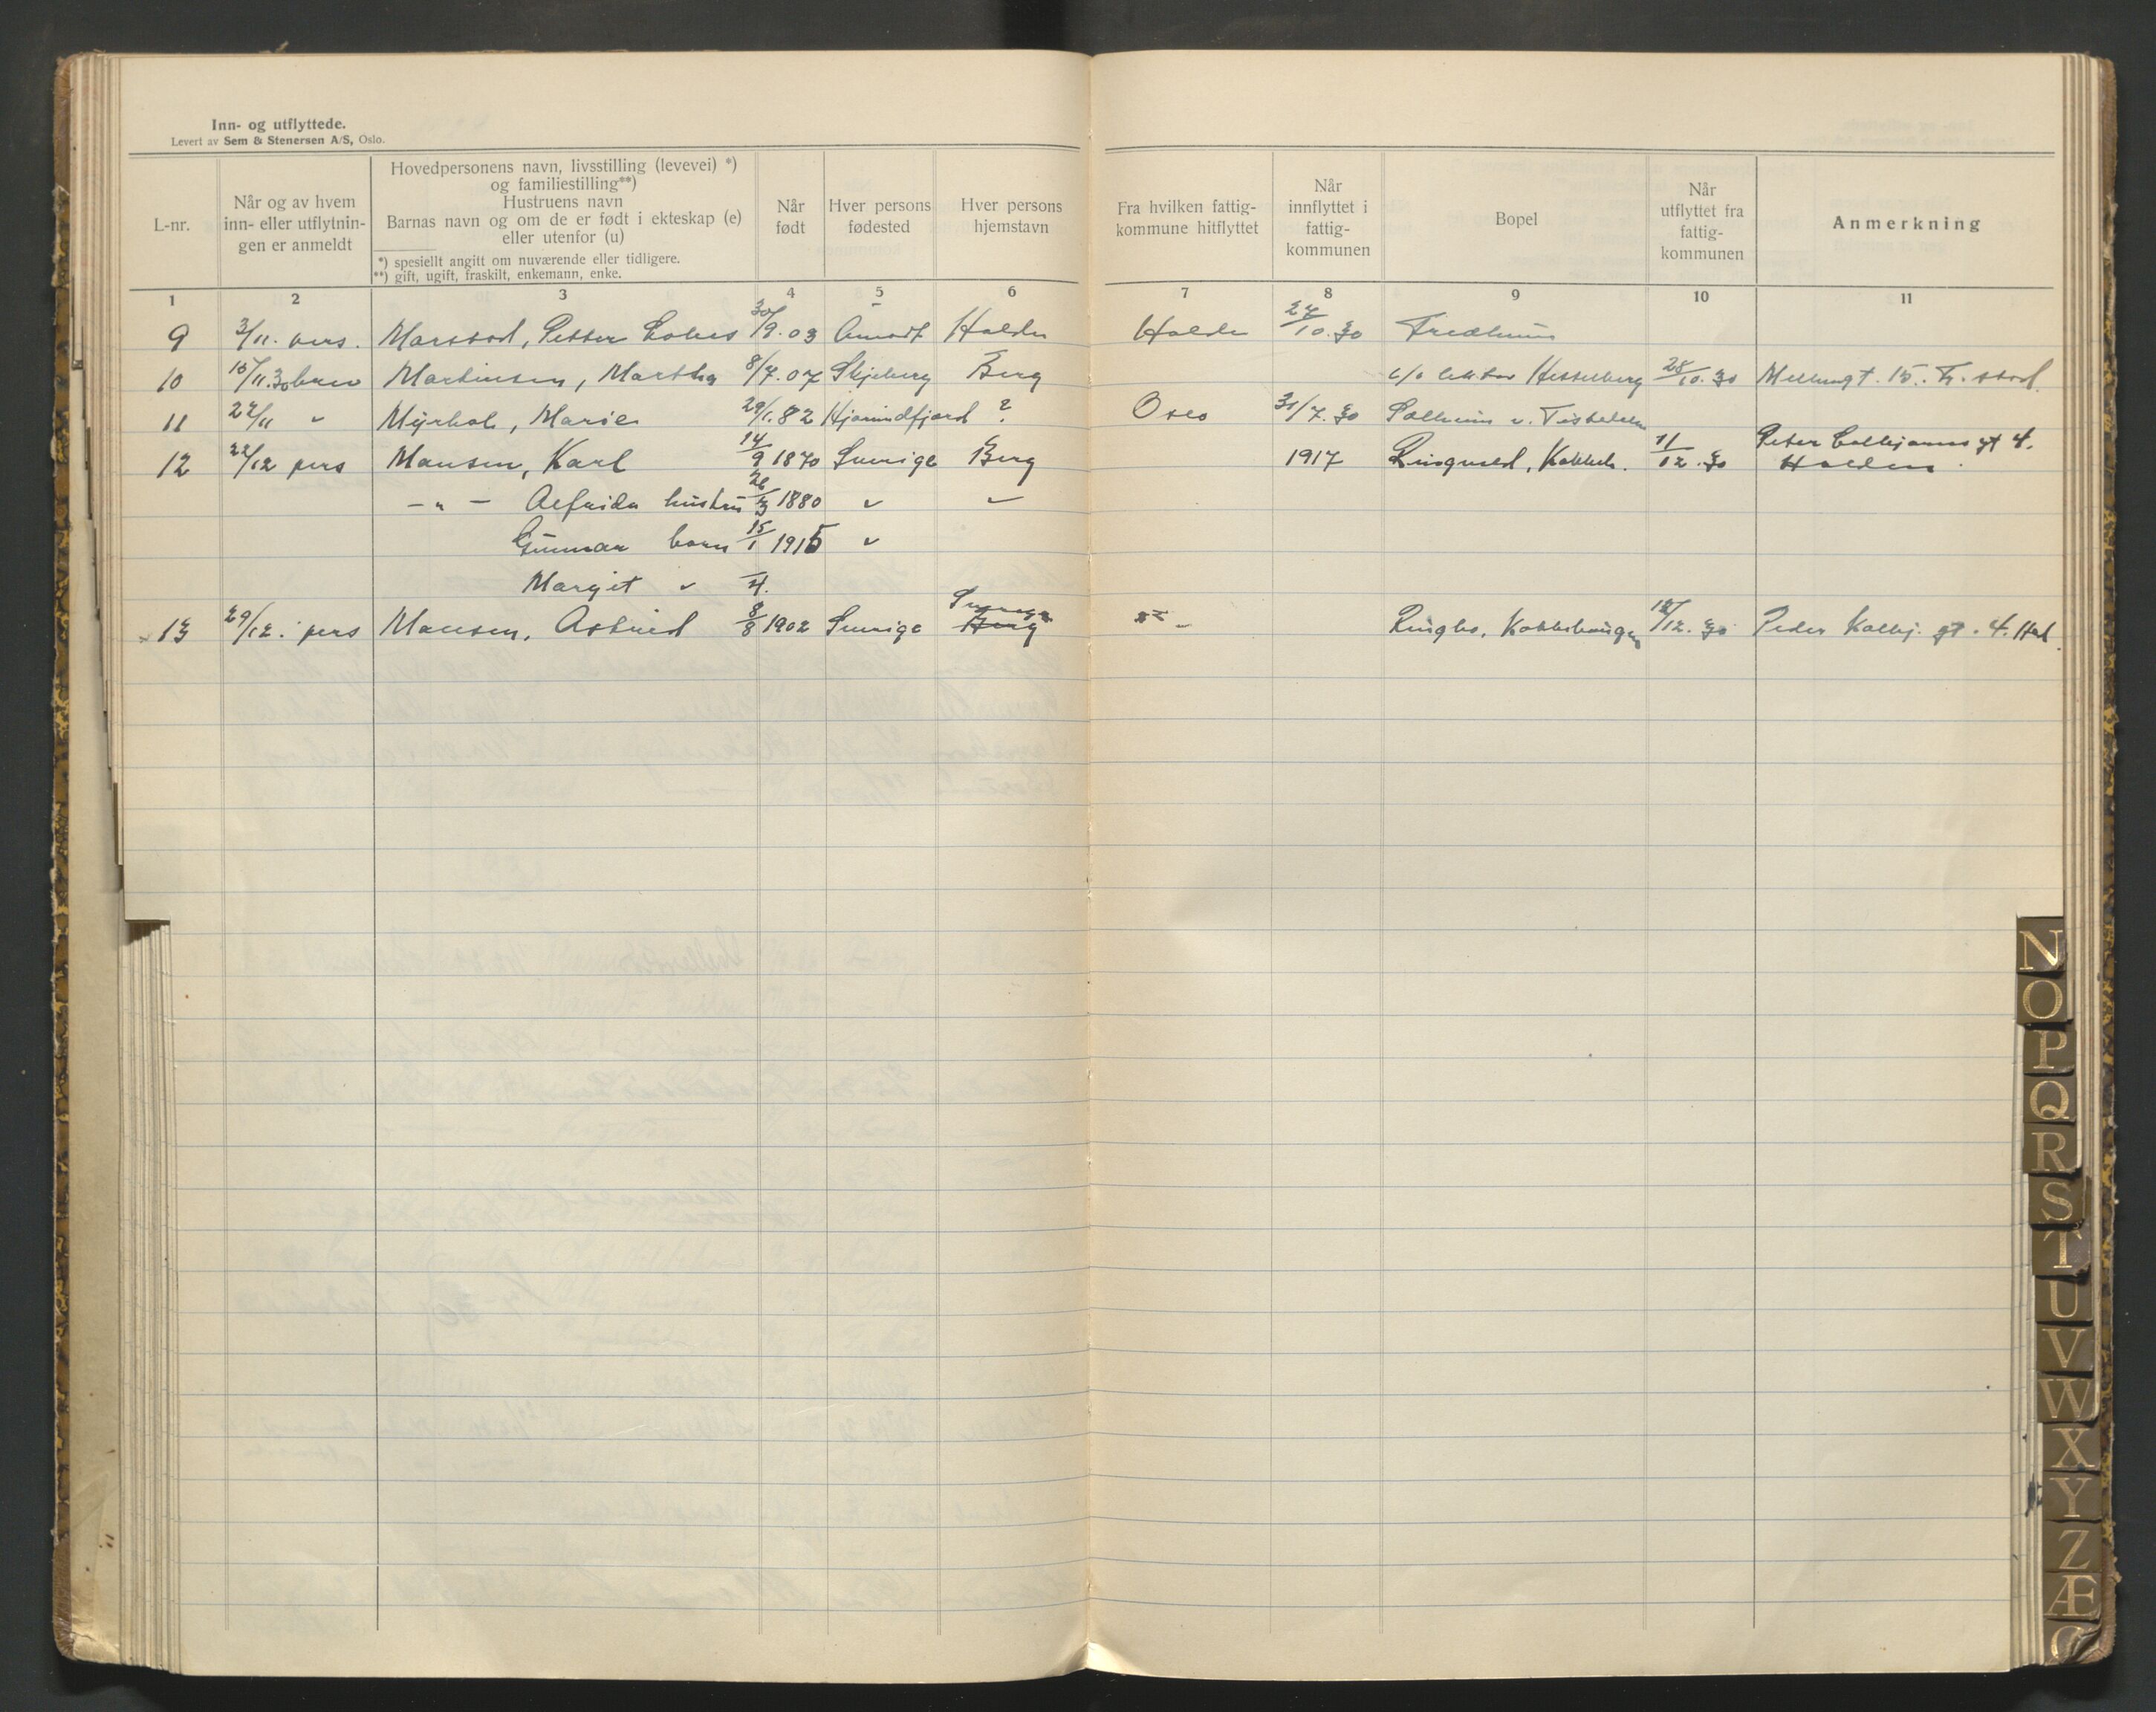 Inn- og utflyttede.
Levert av Sem & Stenersen A/S, Oslo.
L-nr.
Når og av hvem
inn- eller utflytnin-
gen er anmeldt
Hovedpersonens navn, livsstilling (levevei) *)
og familiestilling**)
Hustruens navn
Barnas navn og om de er født i ekteskap (e)
eller utenfor (u)
*) spesiellt angitt om nuværende eller tidligere.
**) gift, ugift, fraskilt, enkemann, enke.
Når
født
Hver persons
fødested
Hver persons
hjemstavn
Fra hvilken fattig-
kommune hitflyttet
Når
innflyttet i
fattig-
kommunen
Bopel
Når
utflyttet fra
fattig-
kommunen
Anmerkning
1 2 3 4 5 6 7 8 9 10 11
9 3/11. pers. Petter 30/9.03 Halden Halden 27/10.30 Fredheim
10 /11.30 brev Martinsen, Martha 8/7.07 Skjeberg Berg c/o lektor Hesselberg 28/10.30 15. Fr.stad.
11 22/11 " Myrhol, Marie 29/1.82 Hjørundfjord ? Oslo 31/7.30 Solheim v. Tistedalen
12 22/12 pers Mansen, Karl 14/9 1870 Sverige Berg 1917 11/12.30 Peter Colbjørns gt 4.
Halden.
- " - Alfrida hustru 26/3 1880 " "
Gunnar barn 15/1 1915 "
Margit " 4.
13 29/12. pers Mansen, Astrid 8/8 1902 Sverige Berg Sverige Ringbo, 12/12.30 Peder Kolbj. gt. 4. Hal.
N
O
P
Q
R
S
T
U
V
W
X
Y
Z
Æ